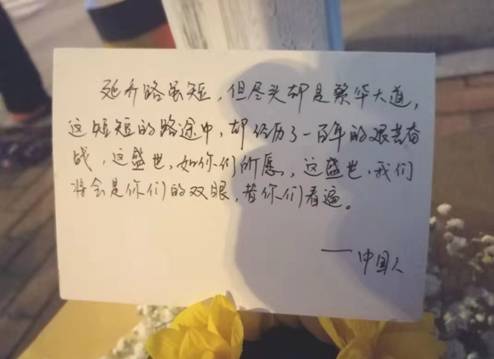 延乔路虽短，但尽头却是繁华大道，
这短短的路途中，却经历了一百年的艰苦奋
战，这盛世，如你们所愿，这盛世，我们
将会是你们的双眼，替你们看遍。
——中国人